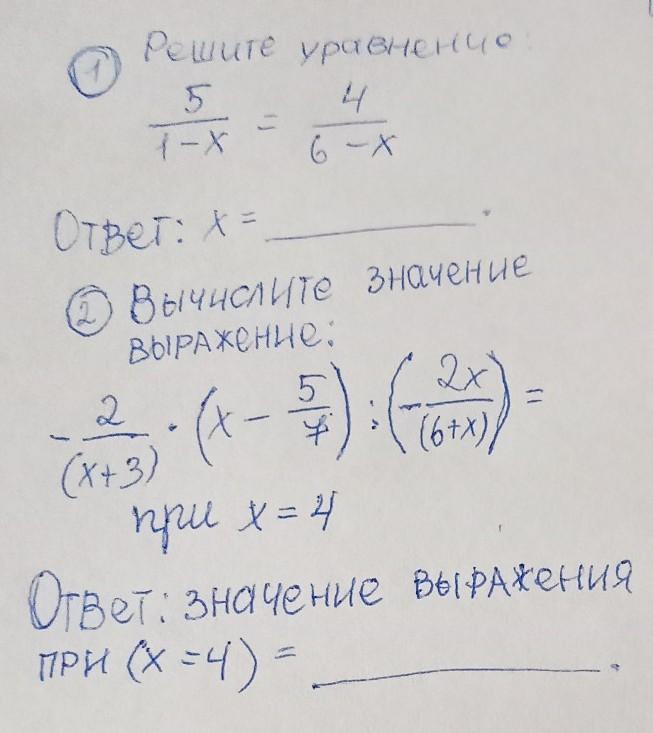 ① Решите уравнение:
5/(1-x) = 4/(6-x)
Ответ: x = ________.
② Вычислите значение
выражение:
-2/(x+3) · (x - 5/7) : (-2x/(6+x)) =
при x = 4
Ответ: значение выражения
при (x = 4) = ________.